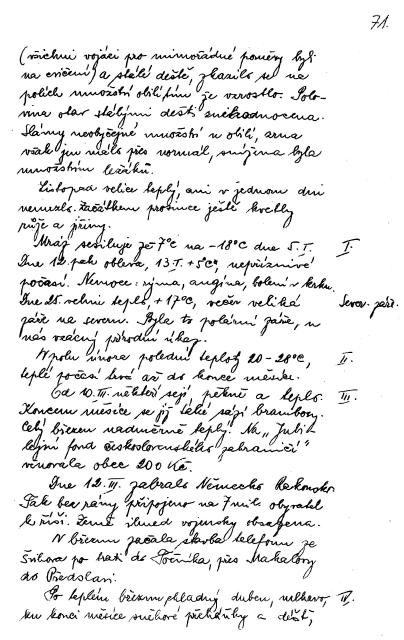 71.
(všichni vojáci pro mimořádné poměry byli
na cvičení) a stálé deště, zkazilo se na
polích množství obilí tím že vzrostlo. Polo-
vina otav stálými dešti znehodnocena.
Slámy neobyčejné množství u obilí, zrna
však jen málo přes normál, snížena byla
množstvím ležáků.
Listopad velice teplý, ani v jednom dni
nemrzlo. Začátkem prosince ještě kvetly
růže a jiřiny.
Mráz sesiluje ze 7°C na -18°C dne 5.I. I.
Dne 12. pak obleva, 13.I. +5°C, nepříznivé
počasí. Nemoce: rýma, angína, bolení v krku.
Dne 25. velmi teplo, +17°C, večer veliká Sever. zář.
záře na severu. Byla to polární záře, u
nás vzácný přírodní úkaz.
V polu února polední teploty 20-28°C, II.
teplé počasí trvá až do konce měsíce.
Od 10.III. někteří sejí, pěkně a teplo. III.
Koncem měsíce se již také sází brambory.
Celý březen nadměrně teplý. Na "Jubi-
lejní fond československého zahraničí"
věnovala obec 200 Kč.
Dne 12.III. zabralo Německo Rakousko.
Tak bez rány připojeno na 7 mil. obyvatel
k říši. Země ihned vojensky obsazena.
V březnu začala stavba telefonu ze
Švihova po trati do Točníka, přes Makalovy
do Předslavi.
Po teplém březnu chladný duben, mlhavo, IV.
ku konci měsíce sněhové přeháňky a déšť,